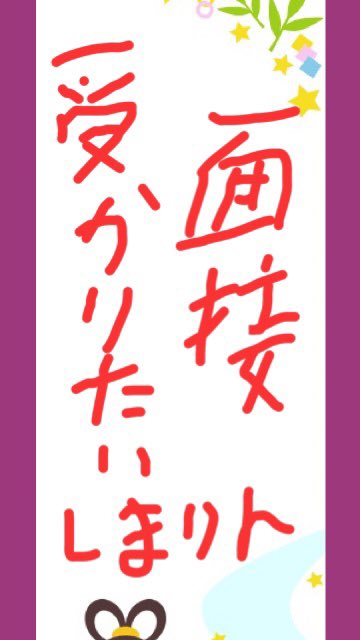 面接
受かりたい
しまりん